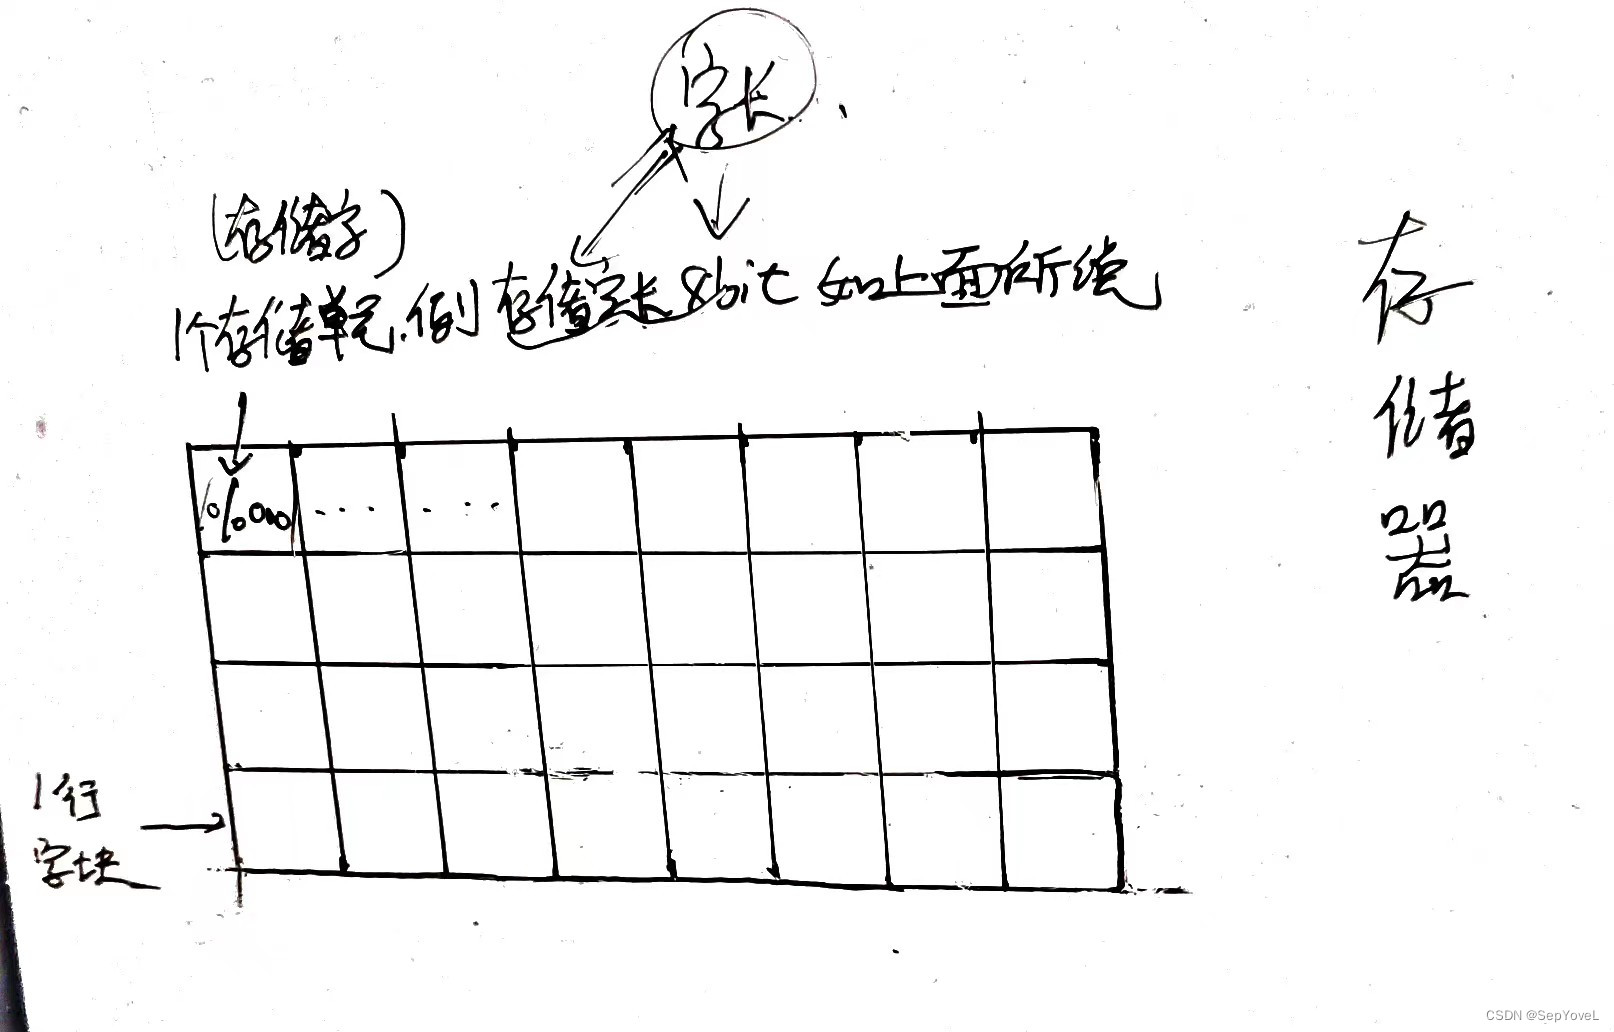 字长
(存储字)
1个存储单元.例存储字长8bit 如上面所绕
存储器
1行
字块
CSDN @SepYoveL